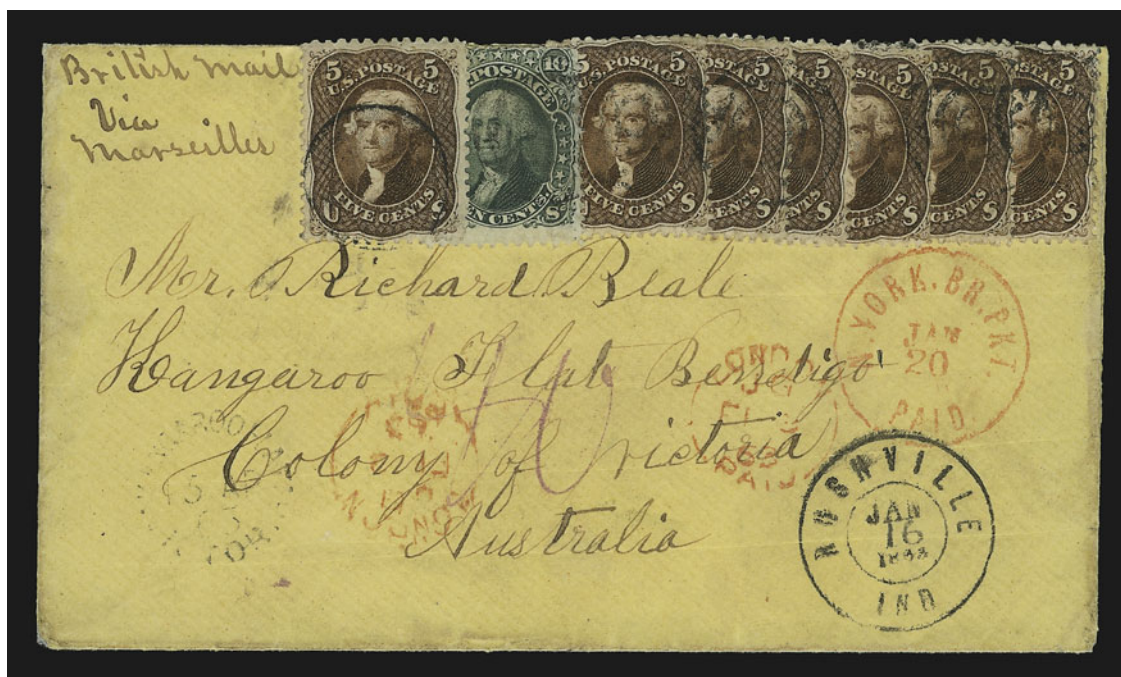 British Mail
Via
Marseilles
5 5
U.S. POSTAGE
FIVE CENTS
10
POSTAGE
TEN CENTS
5 5
U.S. POSTAGE
FIVE CENTS
5
5
5
5
5
Mr. Richard Beale
Kangaroo Flat Bendigo
Colony of Victoria
Australia
N. YORK. BR. PKT.
JAN
20
PAID
PAID
LONDON
RUSHVILLE
JAN
16
IND